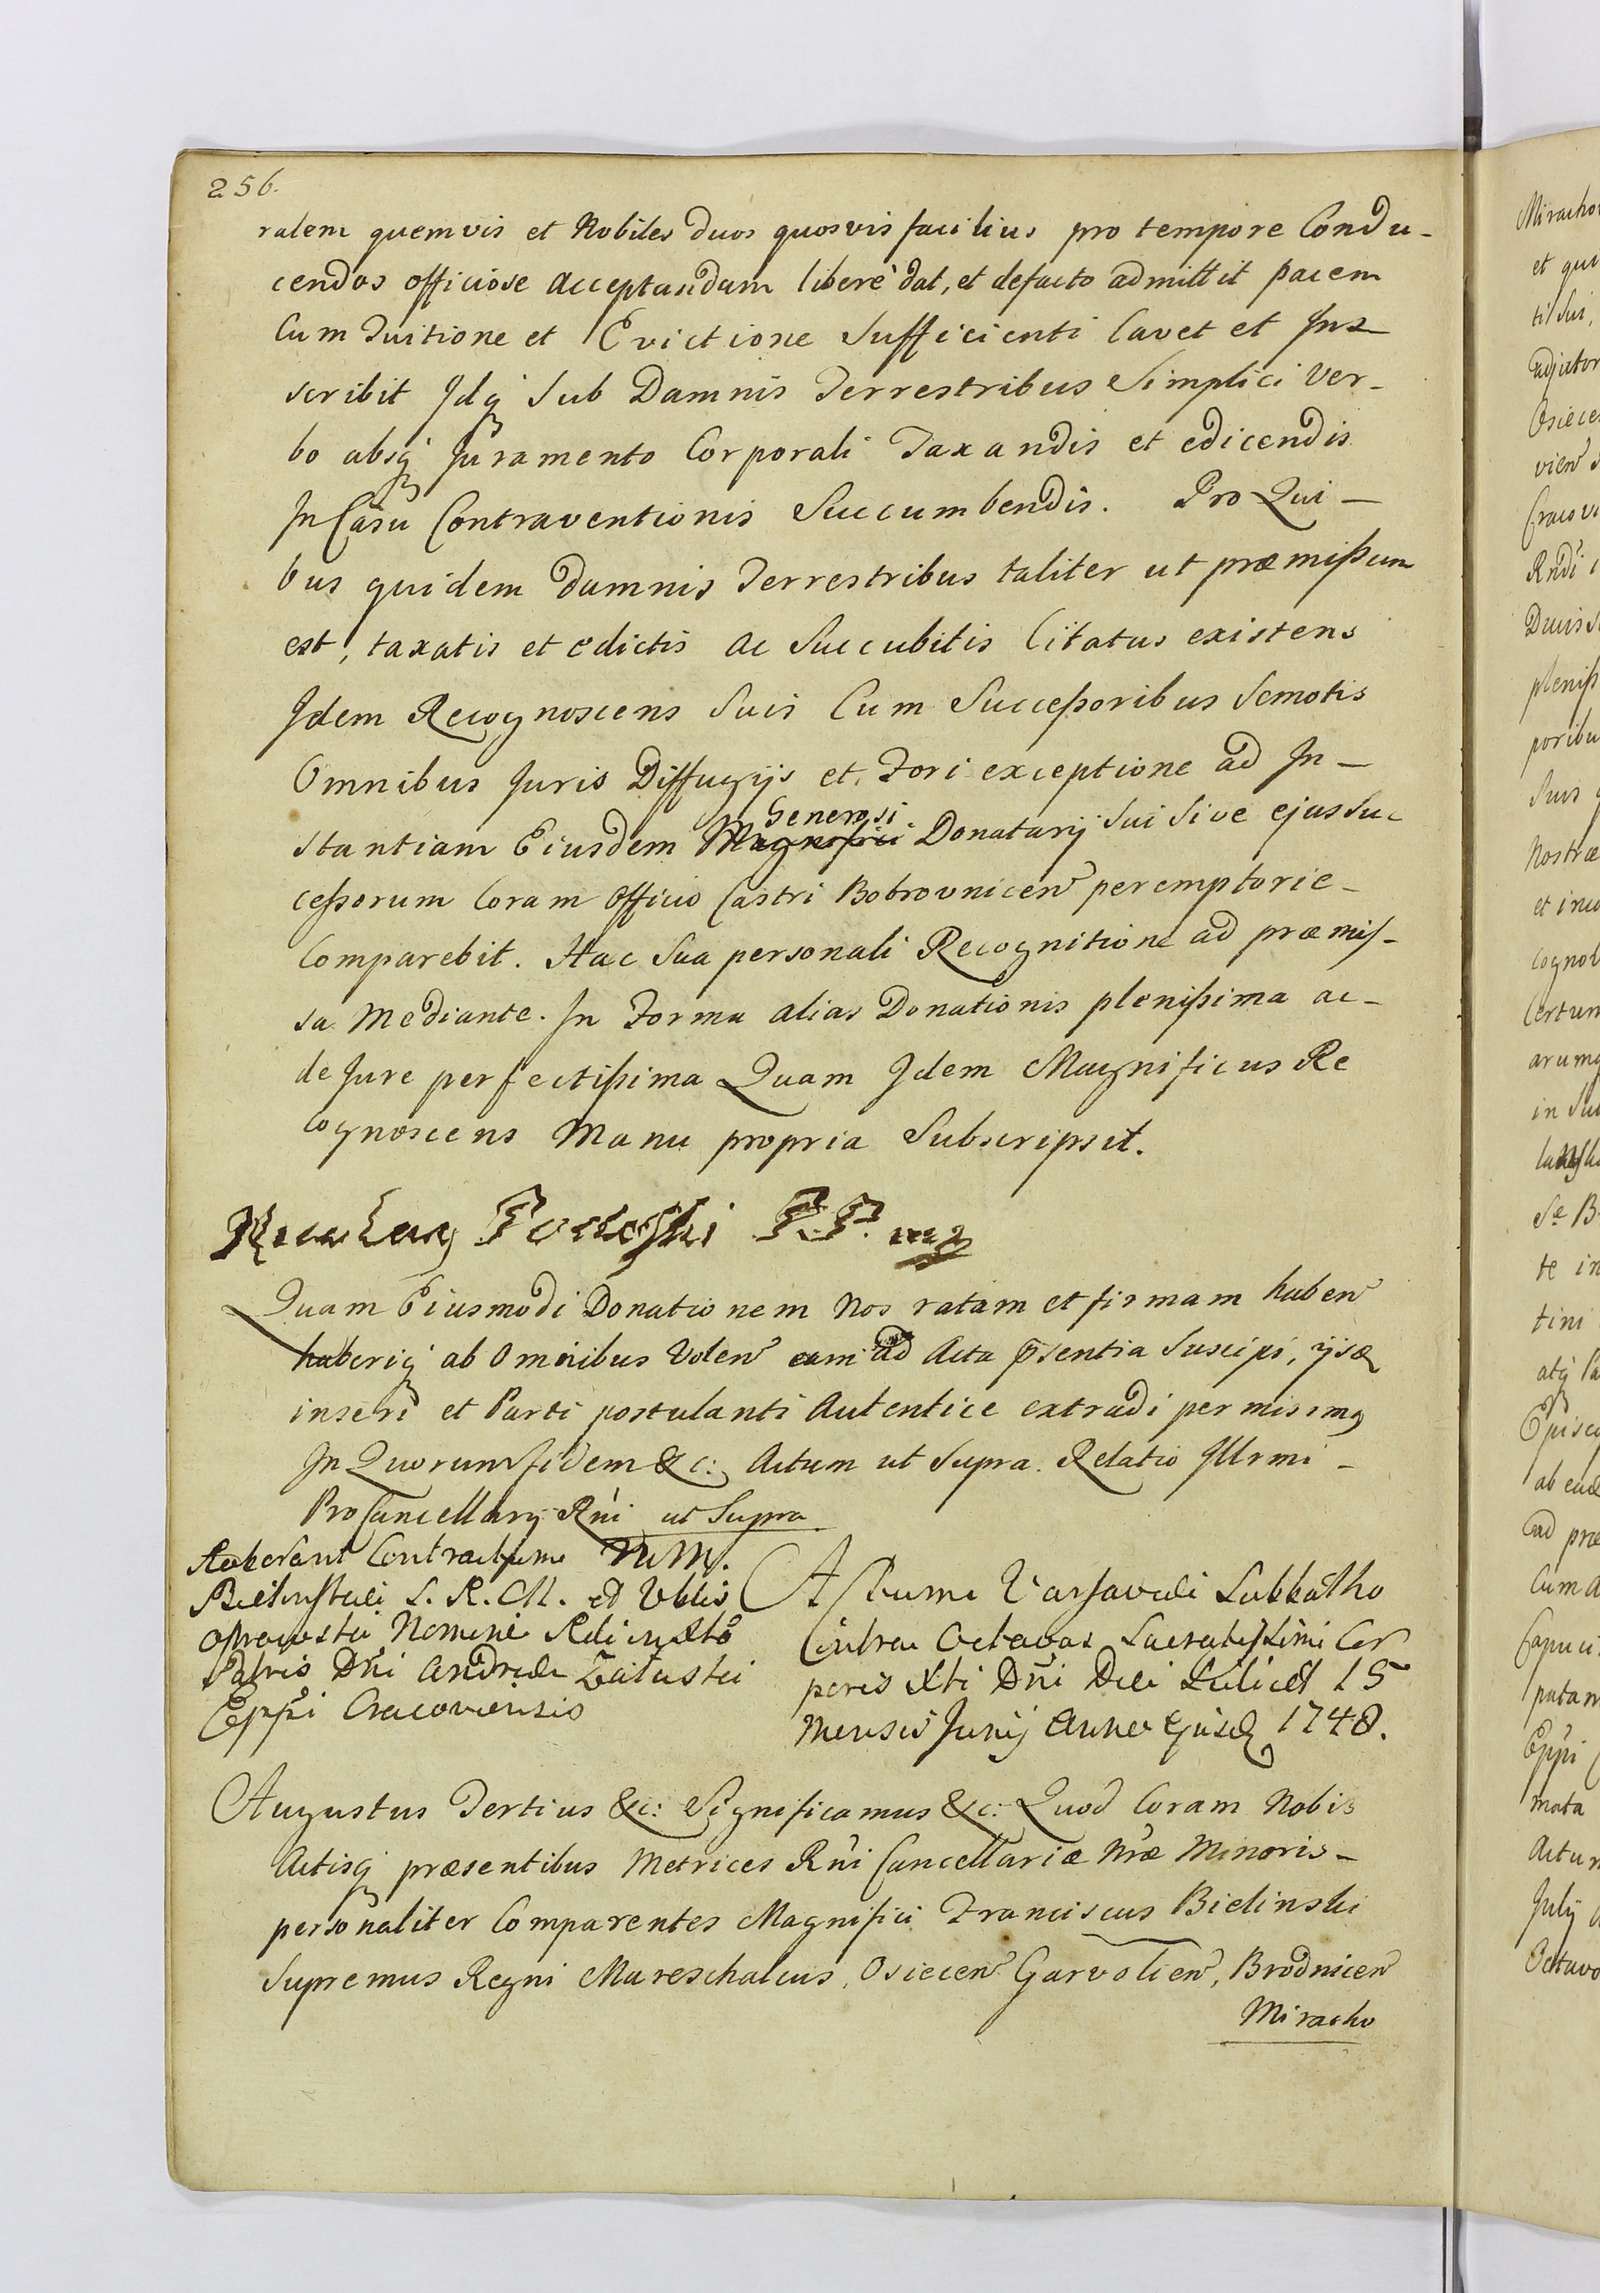 256.
ralem quemvis et Nobiles duos quosvis facilius pro tempore Condu-
cendos officiose acceptandam libere dat, et defacto admittit pacem
Cum Tuitione et Evictione Sufficienti Cavet et Jn-
scribit Jdq́ Sub Damnis Terrestribus Simplici Ver-
bo absq́ Juramento Corporali Taxandis et edicendis
Jn Casu Contraventionis Succumbendis. Pro Qui-
bus quidem damnis Terrestribus taliter ut præmißum
est, taxatis et edictis ac Succubitis Citatus existens
Jdem Recognoscens Suis Cum Succeßoribus Semotis
Omnibus Juris Diffugijs et Fori exceptione ad Jn-
Generosi
stantiam Eiusdem Magnifici Donatarij Sui Sive ejus Suc
ceßorum Coram Officio Castri Bobrovnicen peremptorie-
Comparebit. Hac Sua personali Recognitione ad præmis-
sa Mediante. Jn Forma alias Donationis plenißima ac-
de Jure perfectißima Quam Jdem Magnificus Re
cognoscens Manu propria Subscripsit.
Quam Eiusmodi Donationem Nos ratam et firmam haben
haberiq́ ab Omnibus Volen eam ad Acta p̄sentia Suscipi, ijsq
inseri et Parti postulanti Autentice extradi permisimq
Jn Quorum fidem &c: Actum ut Supra. Relatio Jllrmi-
ProCancellarij Rńi ut Supra
Roborant Contractum MM.
Bielinski S. R. M. et
Nomine
Patris Dńi Andreæ Załuski
Eppi Cracoviensis
Actum Varsaviæ Sabbatho
intra Octavas Sacratissimi Cor
poris Xti Dńi Die Scilicet 15
Mensis Junij Anno Ejusd 1748.
Augustus Tertius &c: Significamus &c: Quod Coram Nobis
Actisq́ præsentibus Metrices Rńi Cancellariæ Nræ Minoris-
personaliter Comparentes Magnifici Franciscus Bielinski
Supremus Regni Mareschalcus, Osiecen Garvolien, Brodnicen
Miracho